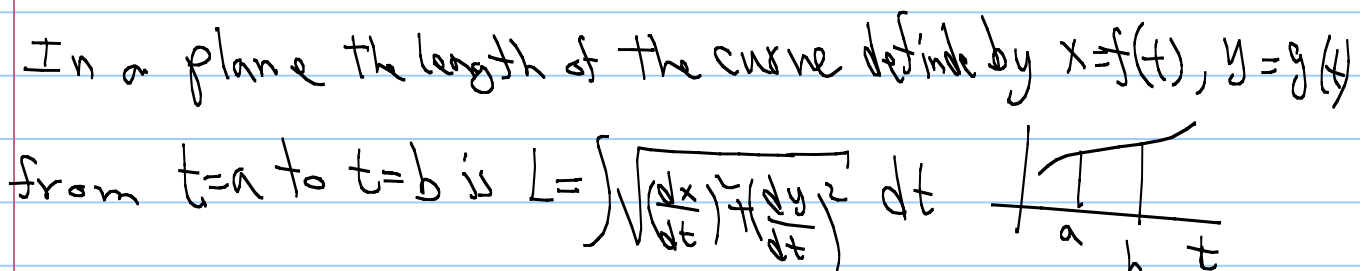 In a plane the length of the curve definde by x=f(t), y=g(t)
from t=a to t=b is L=∫√((dx/dt)²+(dy/dt)²) dt
a b t